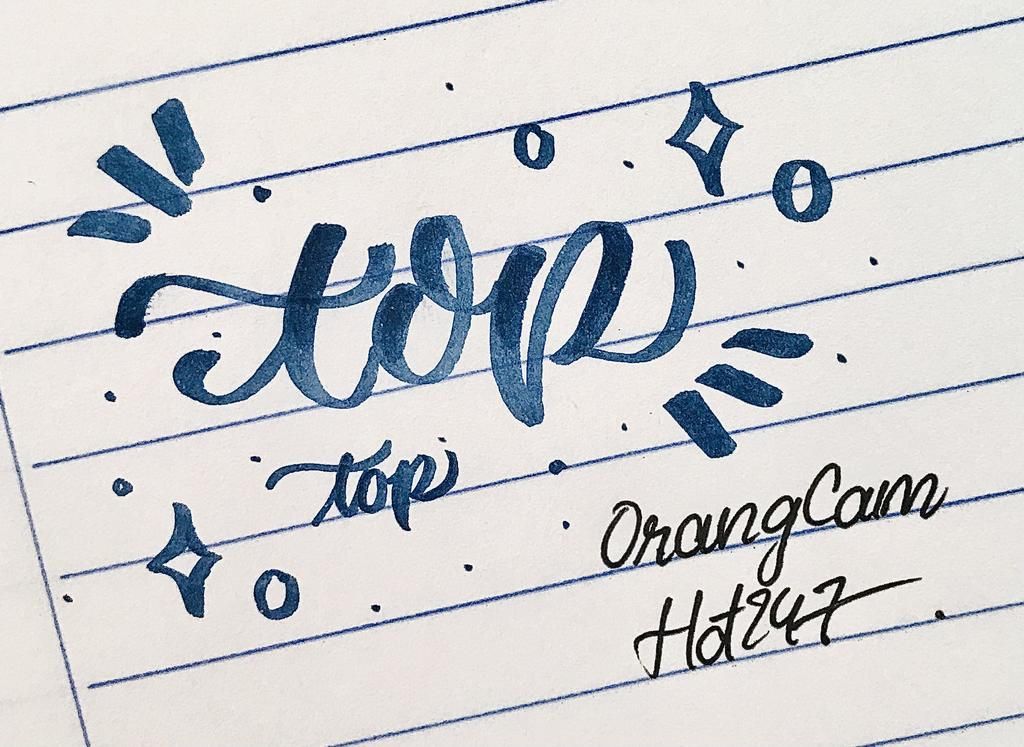 top
top
OrangCam
Hot247